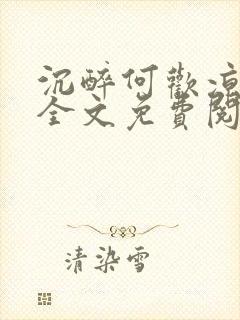 沉醉何歡涼
全文免費閱
清染雪